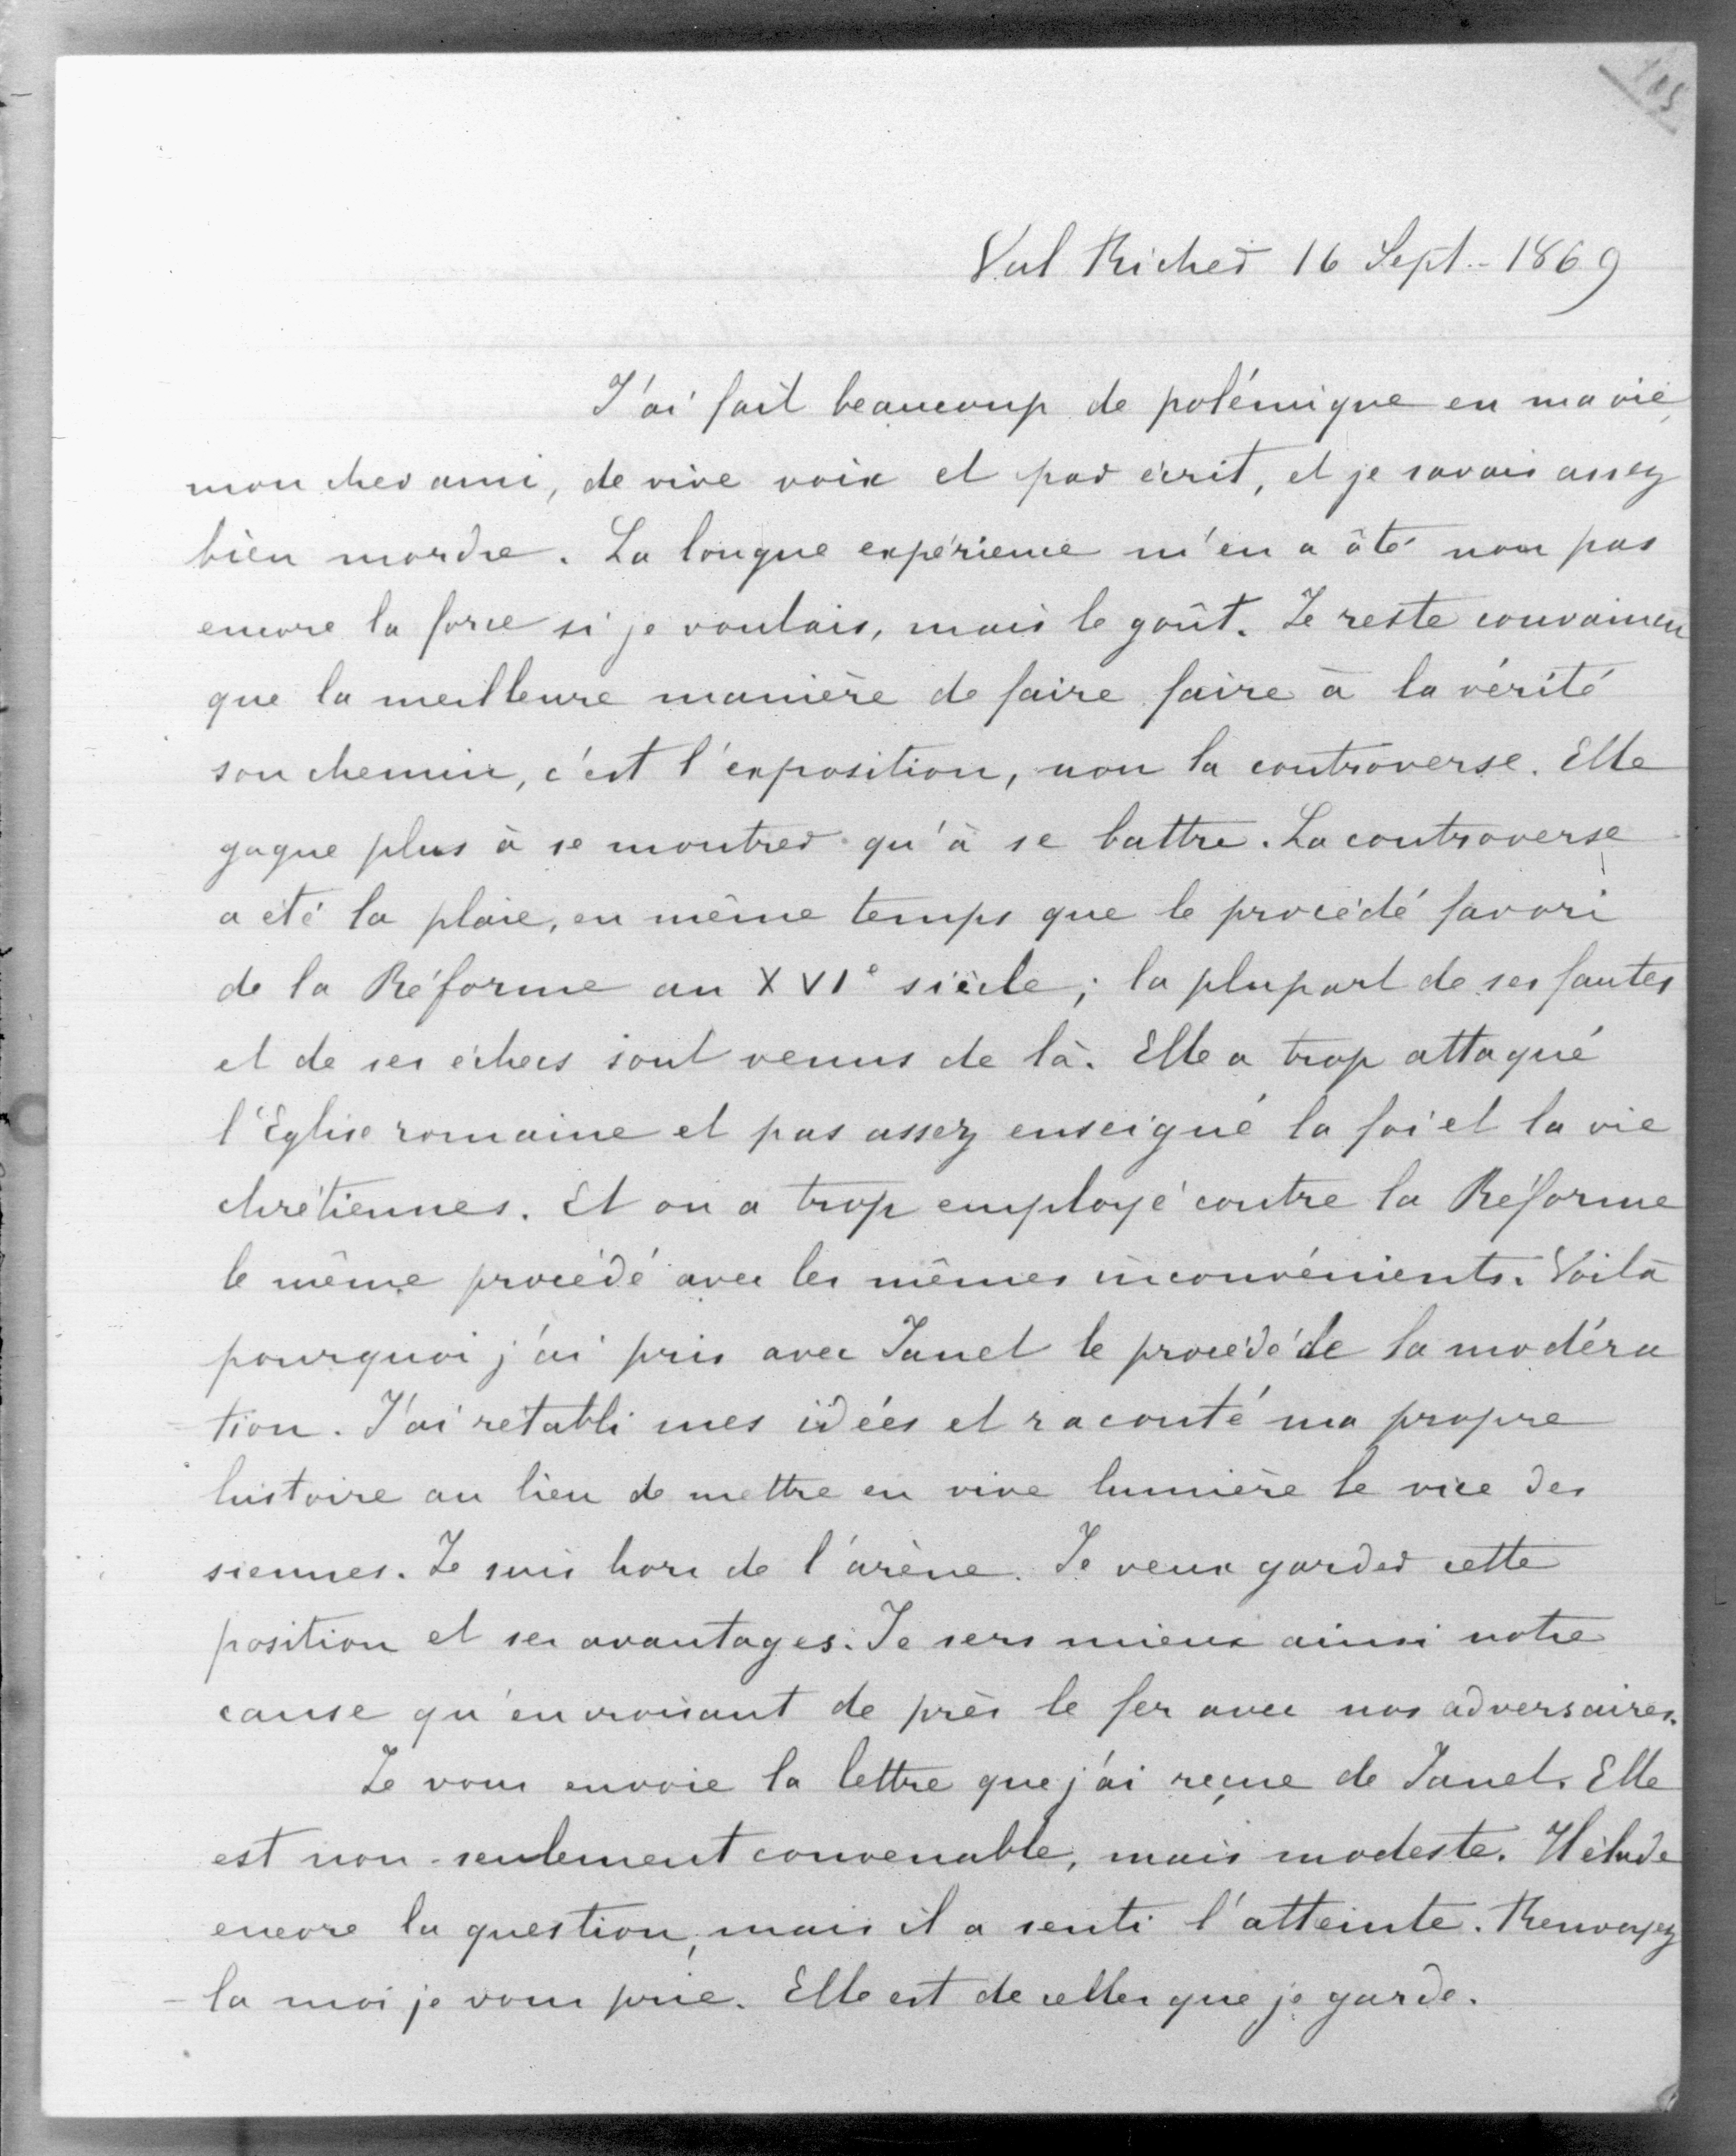 105
Val Richer 16 Sept. - 1869
J'ai fait beaucoup de polémique en ma vie,
mon cher ami, de vive voix et par écrit, et je savais assez
bien mordre. La longue expérience m'en a ôté non pas
encore la force si je voulais, mais le goût. Je reste convaincu
que la meilleure manière de faire faire à la vérité
son chemin, c'est l'exposition, non la controverse. Elle
gagne plus à se montrer qu'à se battre. La controverse
a été la plaie, en même temps que le procédé favori
de la Réforme au XVIe siècle ; la plupart de ses fautes
et de ses échecs sont venus de là. Elle a trop attaqué
l'Eglise romaine et pas assez enseigné la foi et la vie
chrétiennes. Et on a trop employé contre la Réforme
le même procédé avec les mêmes inconvénients. Voilà
pourquoi j'ai pris avec Janet le procédé de la modéra
tion. J'ai rétabli mes idées et raconté ma propre
histoire au lieu de mettre en vive lumière le vice des
siennes. Je suis hors de l'arène. Je veux garder cette
position et ses avantages. Je sers mieux ainsi notre
cause qu'en croisant de près le fer avec nos adversaires.
Je vous envoie la lettre que j'ai reçue de Janet. Elle
est non-seulement convenable, mais modeste. Il élude
encore la question, mais il a senti l'atteinte. Renvoyez
- la moi je vous prie. Elle est de celles que je garde.